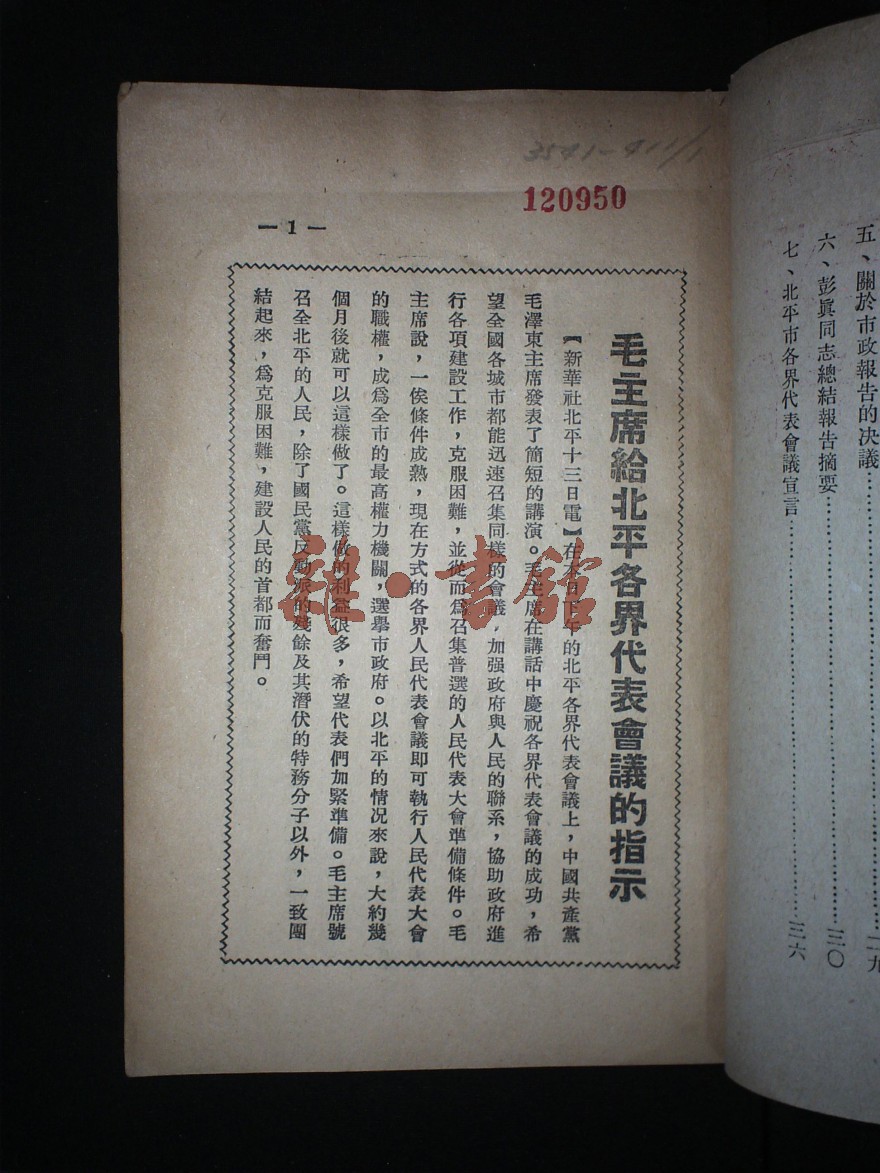 五、關於市政報告的決議……二九
六、彭眞同志總結報告摘要……三〇
七、北平市各界代表會議宣言……三六
120950
— 1 —
毛主席給北平各界代表會議的指示
【新華社北平十三日電】在本日下午的北平各界代表會議上，中國共產黨
毛澤東主席發表了簡短的講演。毛主席在講話中慶祝各界代表會議的成功，希
望全國各城市都能迅速召集同樣的會議，加强政府與人民的聯系，協助政府進
行各項建設工作，克服困難，並從而爲召集普選的人民代表大會準備條件。毛
主席說，一俟條件成熟，現在方式的各界人民代表會議即可執行人民代表大會
的職權，成爲全市的最高權力機關，選舉市政府。以北平的情况來說，大約幾
個月後就可以這樣做了。這樣做的利益很多，希望代表們加緊準備。毛主席號
召全北平的人民，除了國民黨反動派的殘餘及其潛伏的特務分子以外，一致團
結起來，爲克服困難，建設人民的首都而奮鬥。
雜·書館